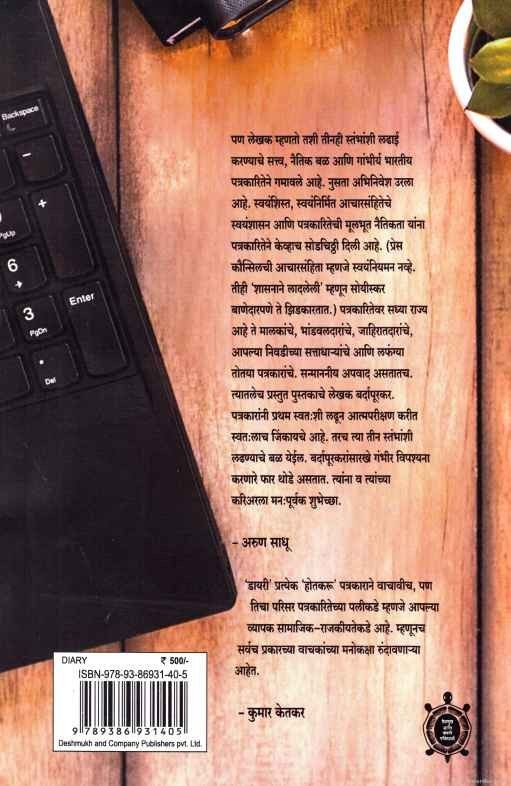 Backspace
+
PgUp
6
3
PgDn
Enter
Del
पण लेखक म्हणतो तशी तीनही स्तंभांशी लढाई
करण्याचे सत्त्व, नैतिक बळ आणि गांभीर्य भारतीय
पत्रकारितेने गमावले आहे. नुसता अभिनिवेश उरला
आहे. स्वयंशिस्त, स्वयंनिर्मित आचारसंहितेचे
स्वयंशासन आणि पत्रकारितेची मूलभूत नैतिकता यांना
पत्रकारितेने केव्हाच सोडचिठ्ठी दिली आहे. (प्रेस
कौन्सिलची आचारसंहिता म्हणजे स्वयंनियमन नव्हे.
तीही 'शासनाने लादलेली' म्हणून सोयीस्कर
बाणेदारपणे ते झिडकारतात.) पत्रकारितेवर सध्या राज्य
आहे ते मालकांचे, भांडवलदारांचे, जाहिरातदारांचे,
आपल्या निवडीच्या सत्ताधाऱ्यांचे आणि लफंग्या
तोतया पत्रकारांचे. सन्माननीय अपवाद असतातच.
त्यातलेच प्रस्तुत पुस्तकाचे लेखक बर्दापूरकर.
पत्रकारांनी प्रथम स्वत:शी लढून आत्मपरीक्षण करीत
स्वत:लाच जिंकायचे आहे. तरच त्या तीन स्तंभांशी
लढण्याचे बळ येईल. बर्दापूरकरांसारखे गंभीर विपश्यना
करणारे फार थोडे असतात. त्यांना व त्यांच्या
करिअरला मन:पूर्वक शुभेच्छा.
– अरुण साधू
'डायरी' प्रत्येक 'होतकरू' पत्रकाराने वाचावीच, पण
तिचा परिसर पत्रकारितेच्या पलीकडे म्हणजे आपल्या
व्यापक सामाजिक-राजकीयतेकडे आहे. म्हणूनच
सर्वच प्रकारच्या वाचकांच्या मनोकक्षा रुंदावणाऱ्या
आहेत.
– कुमार केतकर
DIARY ₹ 500/-
ISBN-978-93-86931-40-5
9 789386 931405
Deshmukh and Company Publishers pvt. Ltd.